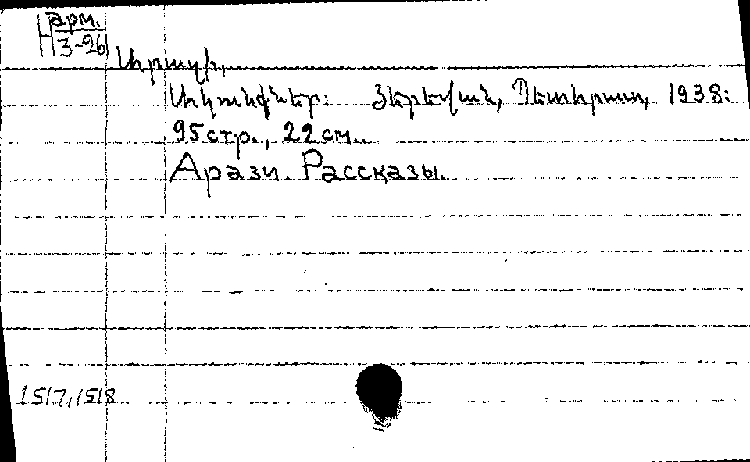 Н арм.
3-96
Արազի,
Ակունքներ: Յերեվան, Պետհրատ, 1938:
95 стр., 22 см.
Арази. Рассказы.
1517,1518